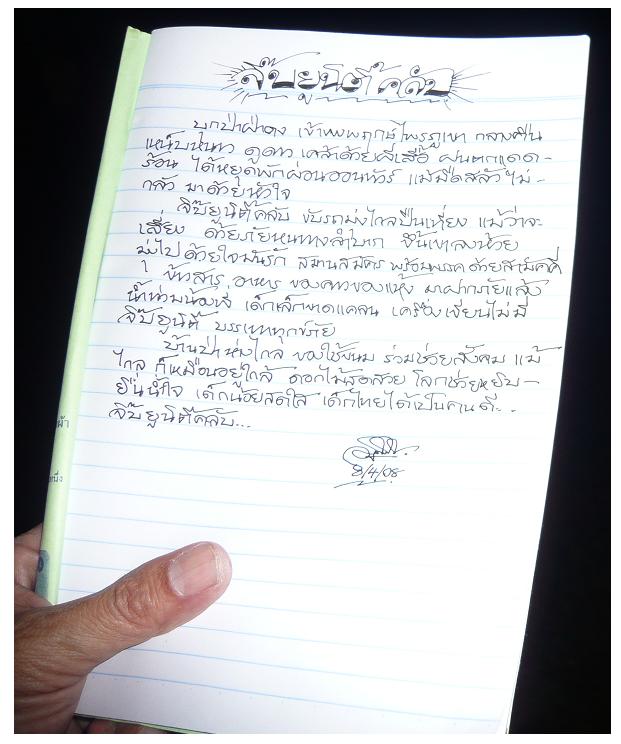 จี๊บยูนิตี้คลับ
บุกป่าฝ่าดง เข้าพงพฤกษ์ไพรภูเขา กลางคืน
เหน็บหนาว ดูดาว เคล้าด้วยผีเสื้อ ฝนตกแดด-
ร้อน ได้หยุดพักผ่อนออนทัวร์ แม้มืดสลัวไม่-
กลัว มาด้วยหัวใจ
จี๊บยูนิตี้คลับ ขับรถมุ่งไกลปืนเที่ยง แม้ว่าจะ
เสี่ยง ด้วยภัยหนทางลำบาก ขึ้นเขาลงห้วย
มุ่งไปด้วยใจมันรัก สมานสมัคร พร้อมพรรคด้วยสามัคคี
ข้าวสาร, อาหาร ของคาวของแห้ง มาฝากภัยแล้ง
น้ำท่วมน้องพี่ เด็กเล็กขาดแคลน เครื่องเขียนไม่มี
จี๊บยูนิตี้ บรรเทาทุกข์ภัย
บ้านป่าห่างไกล ของใช้ขนม ร่วมช่วยสังคม แม้
ไกล ก็เหมือนอยู่ใกล้ ดอกไม้สดสวย โลกช่วยหยิบ-
ยื่นน้ำใจ เด็กน้อยสดใส เด็กไทยได้เป็นคนดี..
จี๊บยูนิตี้คลับ...
8/4/08